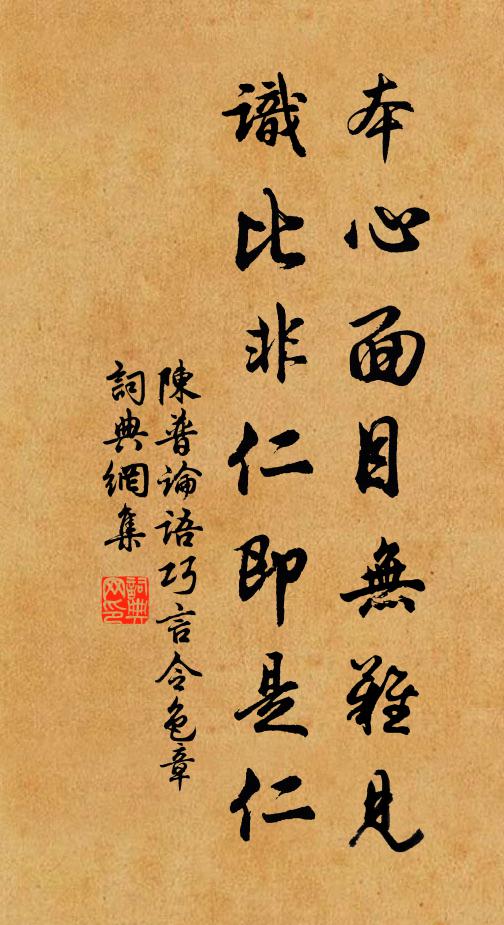 本心面目無難見
識比非仁即是仁
陳普論語巧言令色章
詞典網集
詞典網印